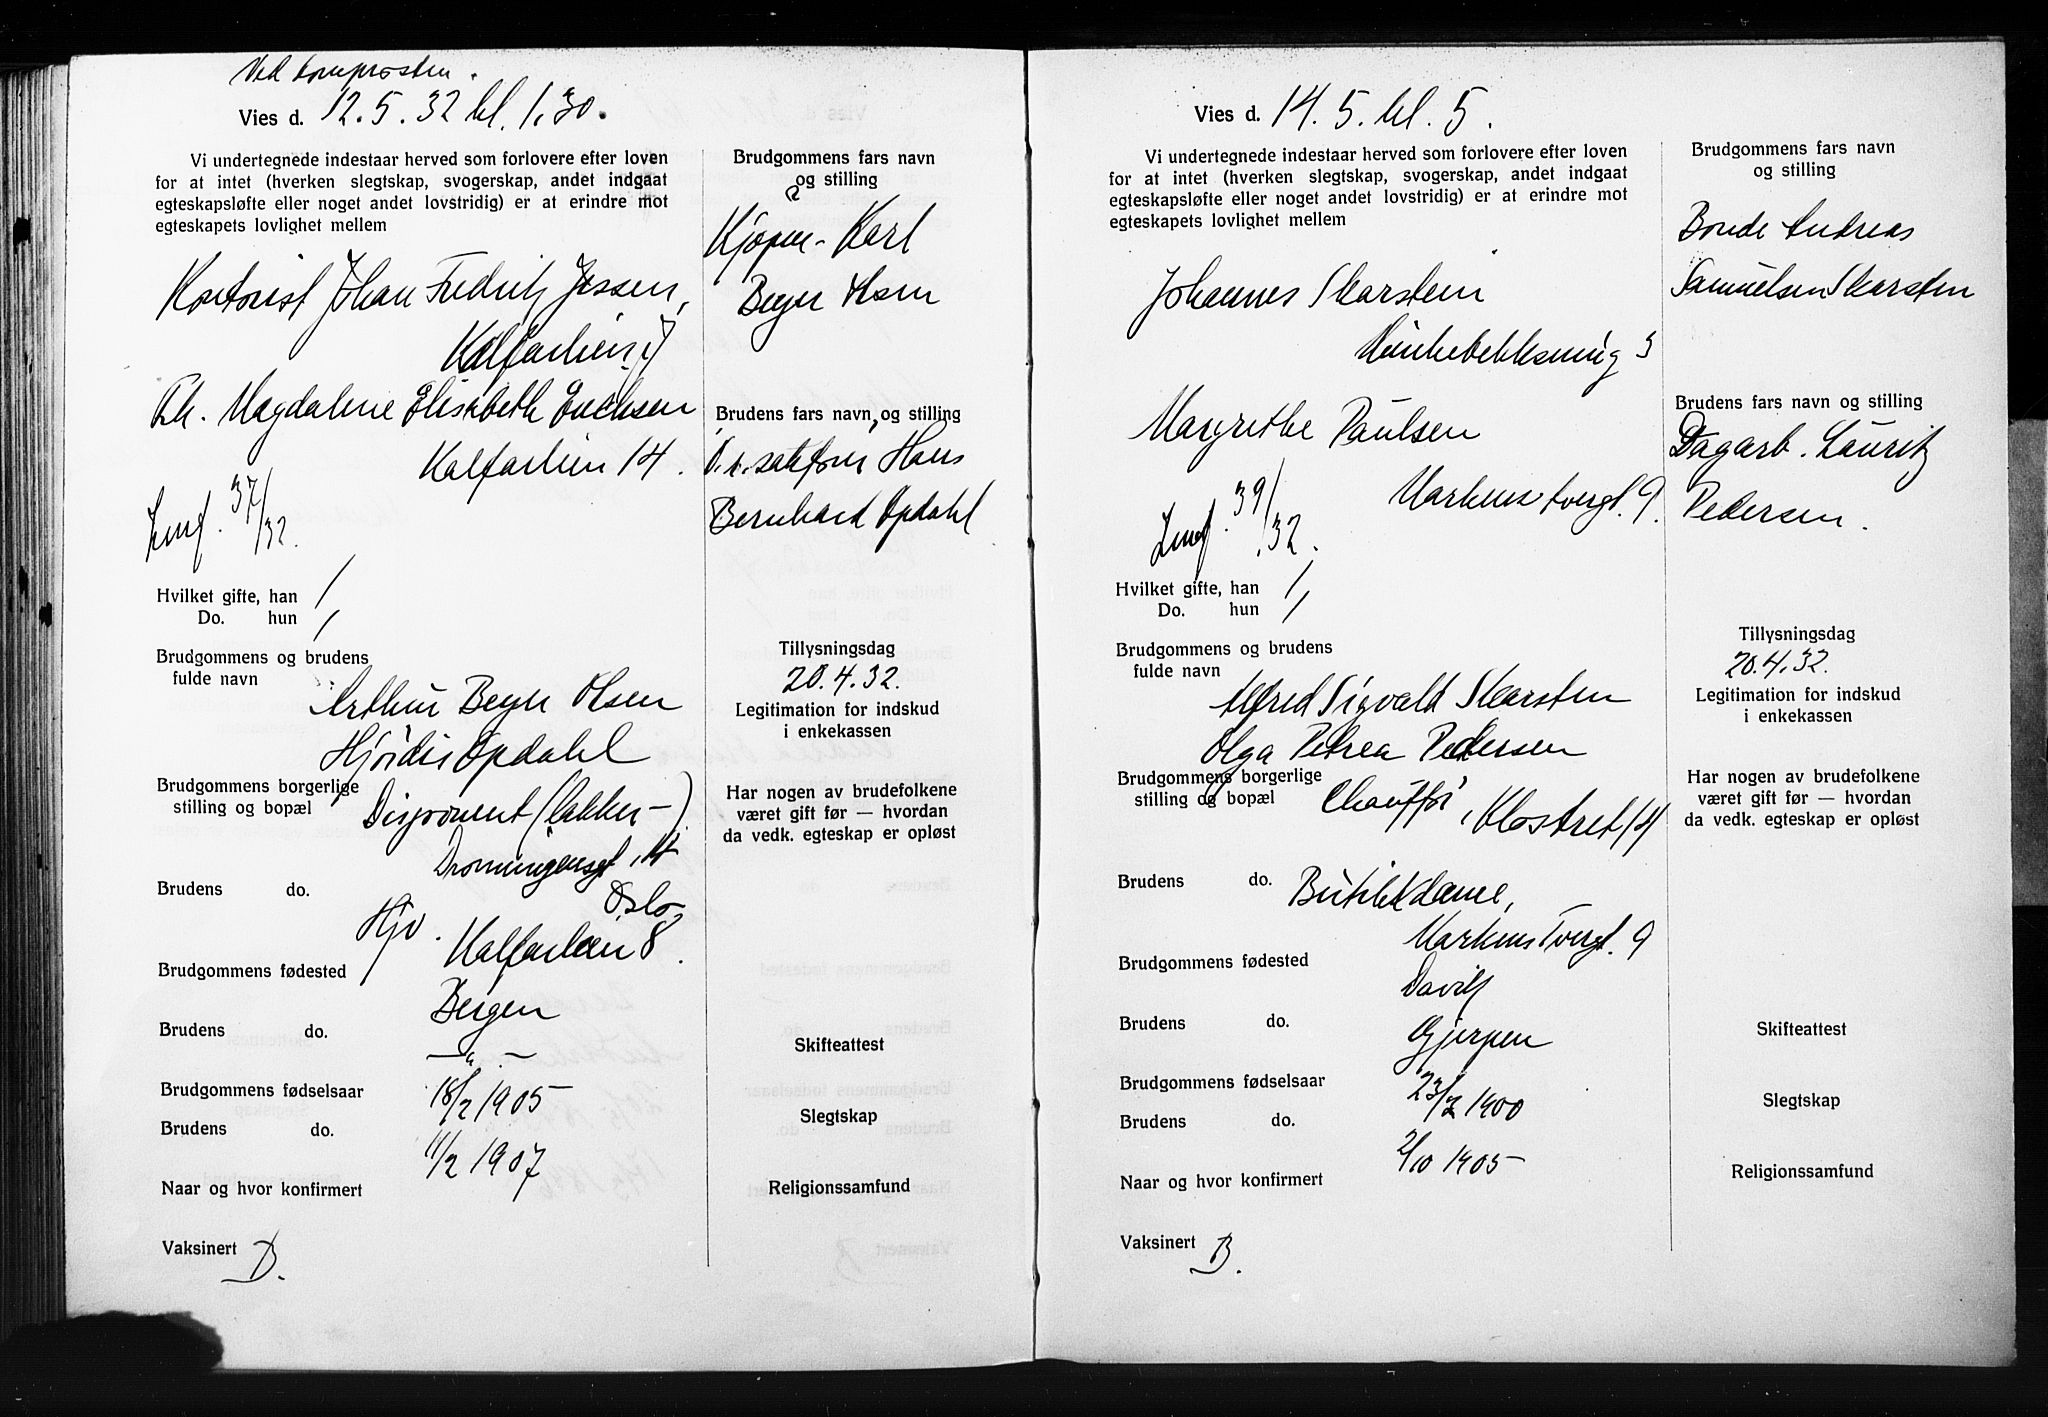 Ved domprosten.
Vies d. 12.5.32 kl. 1.30.
Vi undertegnede indestaar herved som forlovere efter loven
for at intet (hverken slegtskap, svogerskap, andet indgaat
egteskapsløfte eller noget andet lovstridig) er at erindre mot
egteskapets lovlighet mellem
Kontorist Johan Fredrik Jessen,
Kalfarlien
Magdalene Elisabeth Erichsen
Kalfarlien 14.
37/32.
Hvilket gifte, han 1
Do. hun 1
Brudgommens og brudens
fulde navn
Arthur Beyer Olsen
Hjørdis Opdahl
Brudgommens borgerlige
stilling og bopæl Disponent
Dronningensgt 14
Oslo
Brudens do.
Hjv. Kalfarlien 8.
Brudgommens fødested
Bergen
Brudens do.
— " —
Brudgommens fødselsaar 18/2 1905
Brudens do. 11/2 1907
Naar og hvor konfirmert
Vaksinert B.
Brudgommens fars navn
og stilling
Kjøpm. Karl
Beyer Olsen
Brudens fars navn og stilling
O.r.sakfører Hans
Bernhard Opdahl
Tillysningsdag
20.4.32.
Legitimation for indskud
i enkekassen
Har nogen av brudefolkene
været gift før — hvordan
da vedk. egteskap er opløst
Skifteattest
Slegtskap
Religionssamfund
Vies d. 14.5. kl. 5.
Vi undertegnede indestaar herved som forlovere efter loven
for at intet (hverken slegtskap, svogerskap, andet indgaat
egteskapsløfte eller noget andet lovstridig) er at erindre mot
egteskapets lovlighet mellem
Johannes Skarstein
Munkebekksmug 3
Margrethe Paulsen
Markens tvergt. 9.
39/32.
Hvilket gifte, han 1
Do. hun 1
Brudgommens og brudens
fulde navn
Alfred Sigvald Skarsten
Olga Petrea Pedersen
Brudgommens borgerlige
stilling og bopæl Chauffør, Klostret 14
Brudens do. Butikkdame,
Markens Tvergt. 9
Brudgommens fødested
Davik
Brudens do.
Gjerpen
Brudgommens fødselsaar 23/2 1900
Brudens do. 2/10 1905
Naar og hvor konfirmert
Vaksinert B.
Brudgommens fars navn
og stilling
Bonde Andreas
Samuelsen Skarsten
Brudens fars navn og stilling
Dagarb. Lauritz
Pedersen.
Tillysningsdag
20.4.32.
Legitimation for indskud
i enkekassen
Har nogen av brudefolkene
været gift før — hvordan
da vedk. egteskap er opløst
Skifteattest
Slegtskap
Religionssamfund